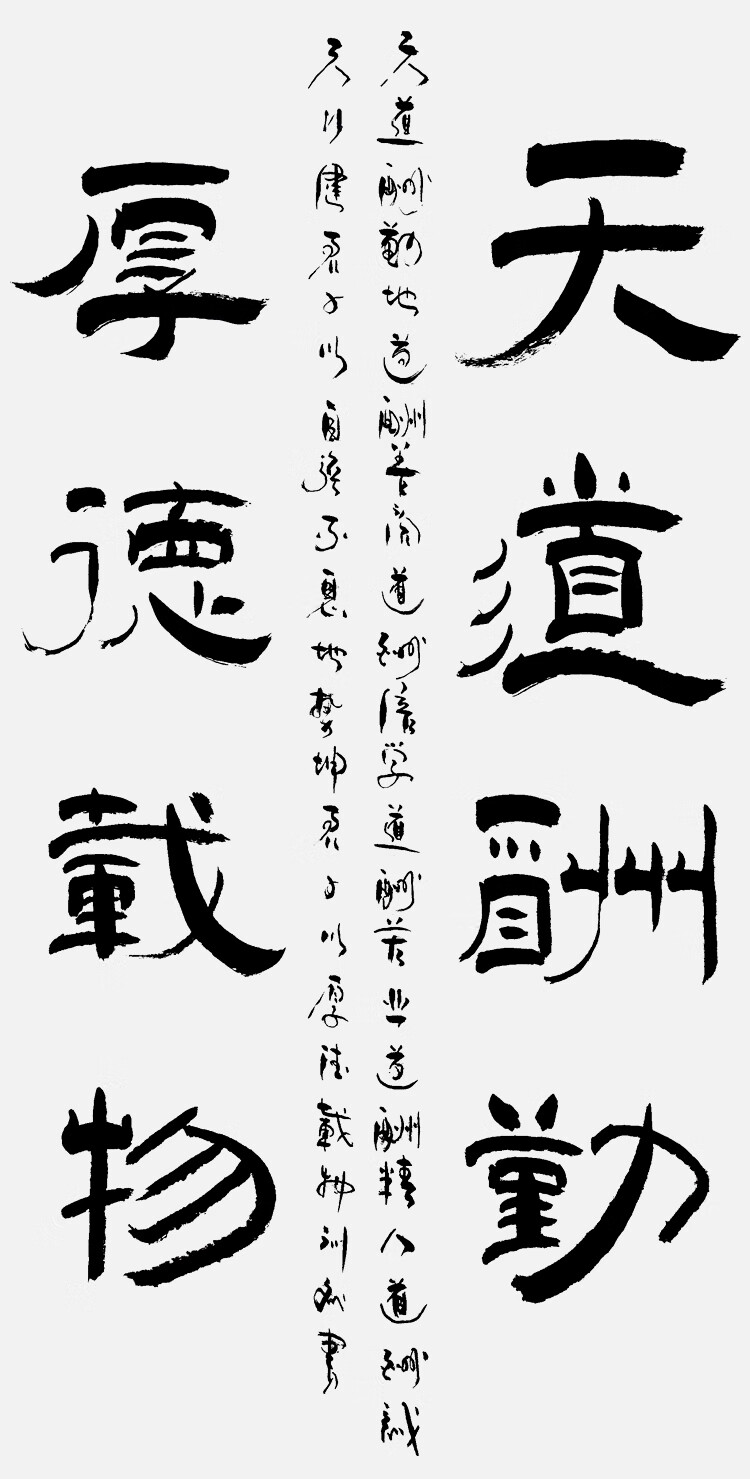 天道酬勤
天道酬勤地道酬善商道酬信学道酬苦业道酬精人道酬誠
天行健君子以自强不息地势坤君子以厚德載物 書
厚德載物